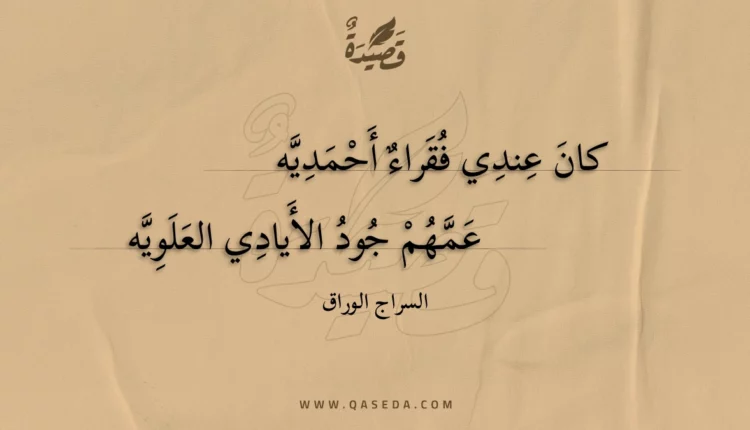 قَصِيدَةٌ
كانَ عِندِي فُقَراءٌ أَحْمَدِيَّه
عَمَّهُمْ جُودُ الأَيادِي العَلَوِيَّه
السراج الوراق
WWW.QASEDA.COM